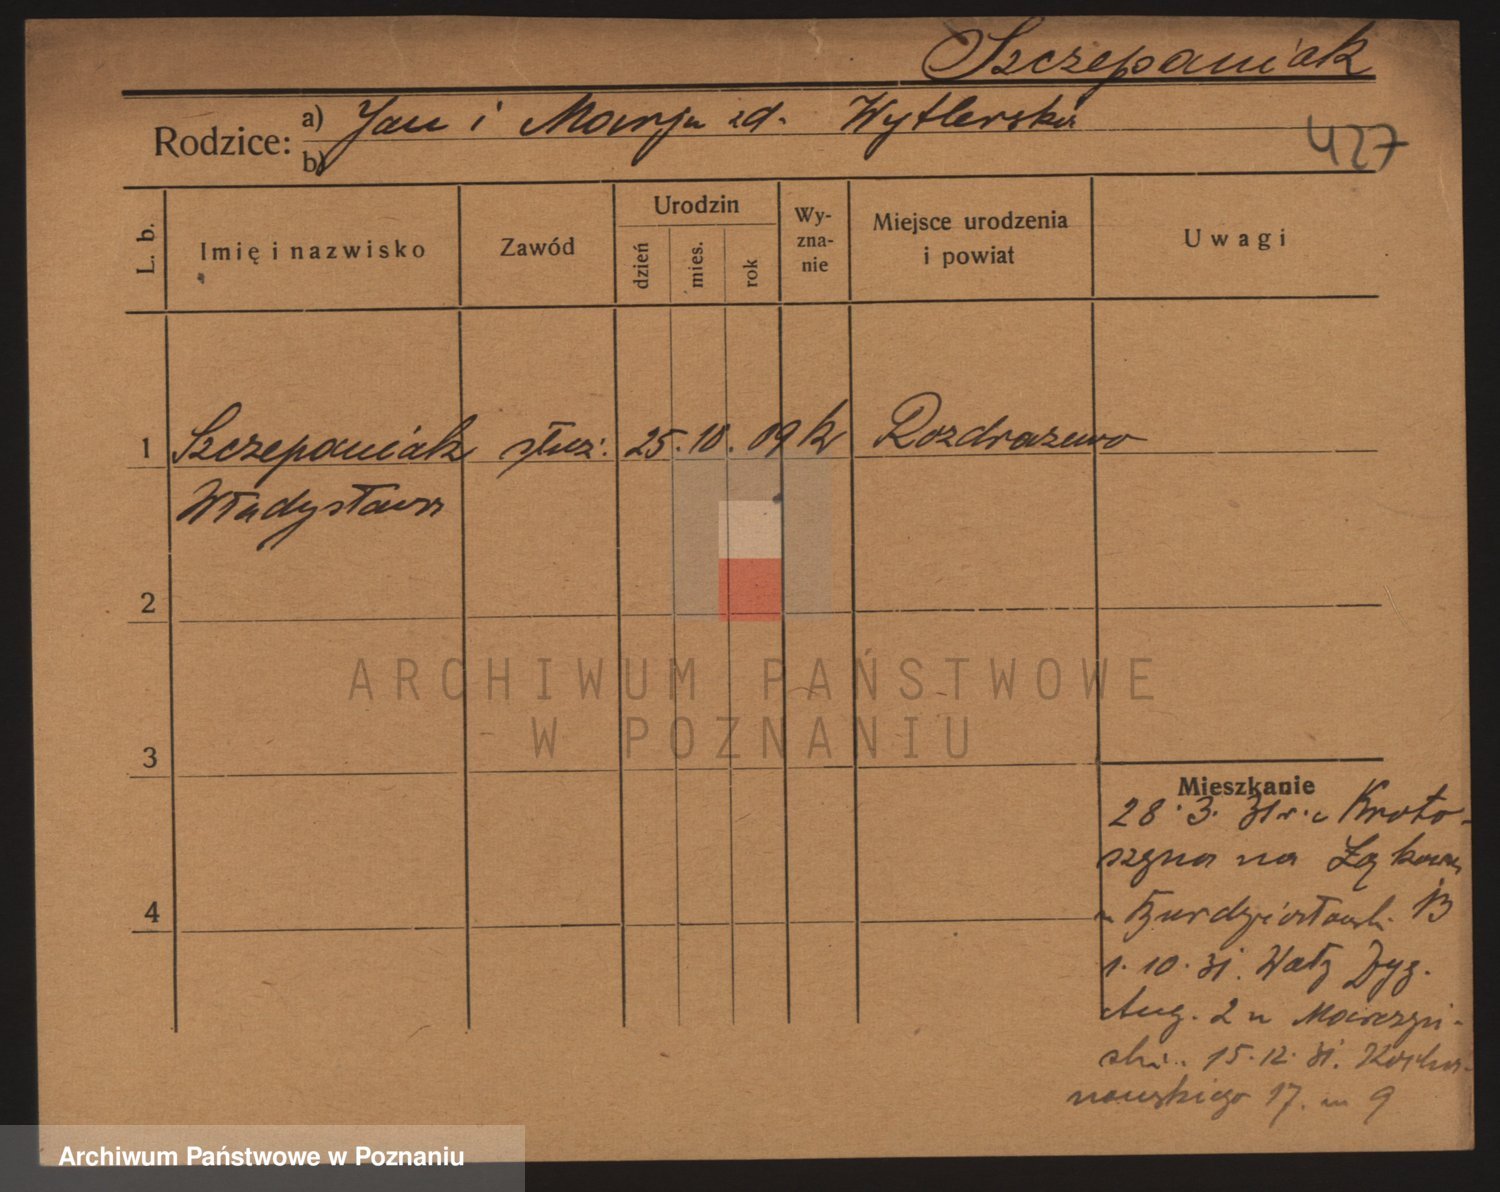 Szczepaniak
Rodzice: a) Jan i Marja zd. Wytlerska
b)
427
L. b.
Imię i nazwisko
Zawód
Urodzin
dzień
mies.
rok
Wy-
zna-
nie
Miejsce urodzenia
i powiat
Uwagi
1 Szczepaniak służ. 25. 10. 09 k Rozdrażewo
Władysława
2
3
4
Mieszkanie
28. 3. 31 r. z Kroto-
szyna na Łąkowa
u 13
1. 10. 31. Wały Zyg.
Aug. 2 u
ski. 15. 12. 31. Kocha-
nowskiego 17. m 9
ARCHIWUM PAŃSTWOWE
W POZNANIU
Archiwum Państwowe w Poznaniu